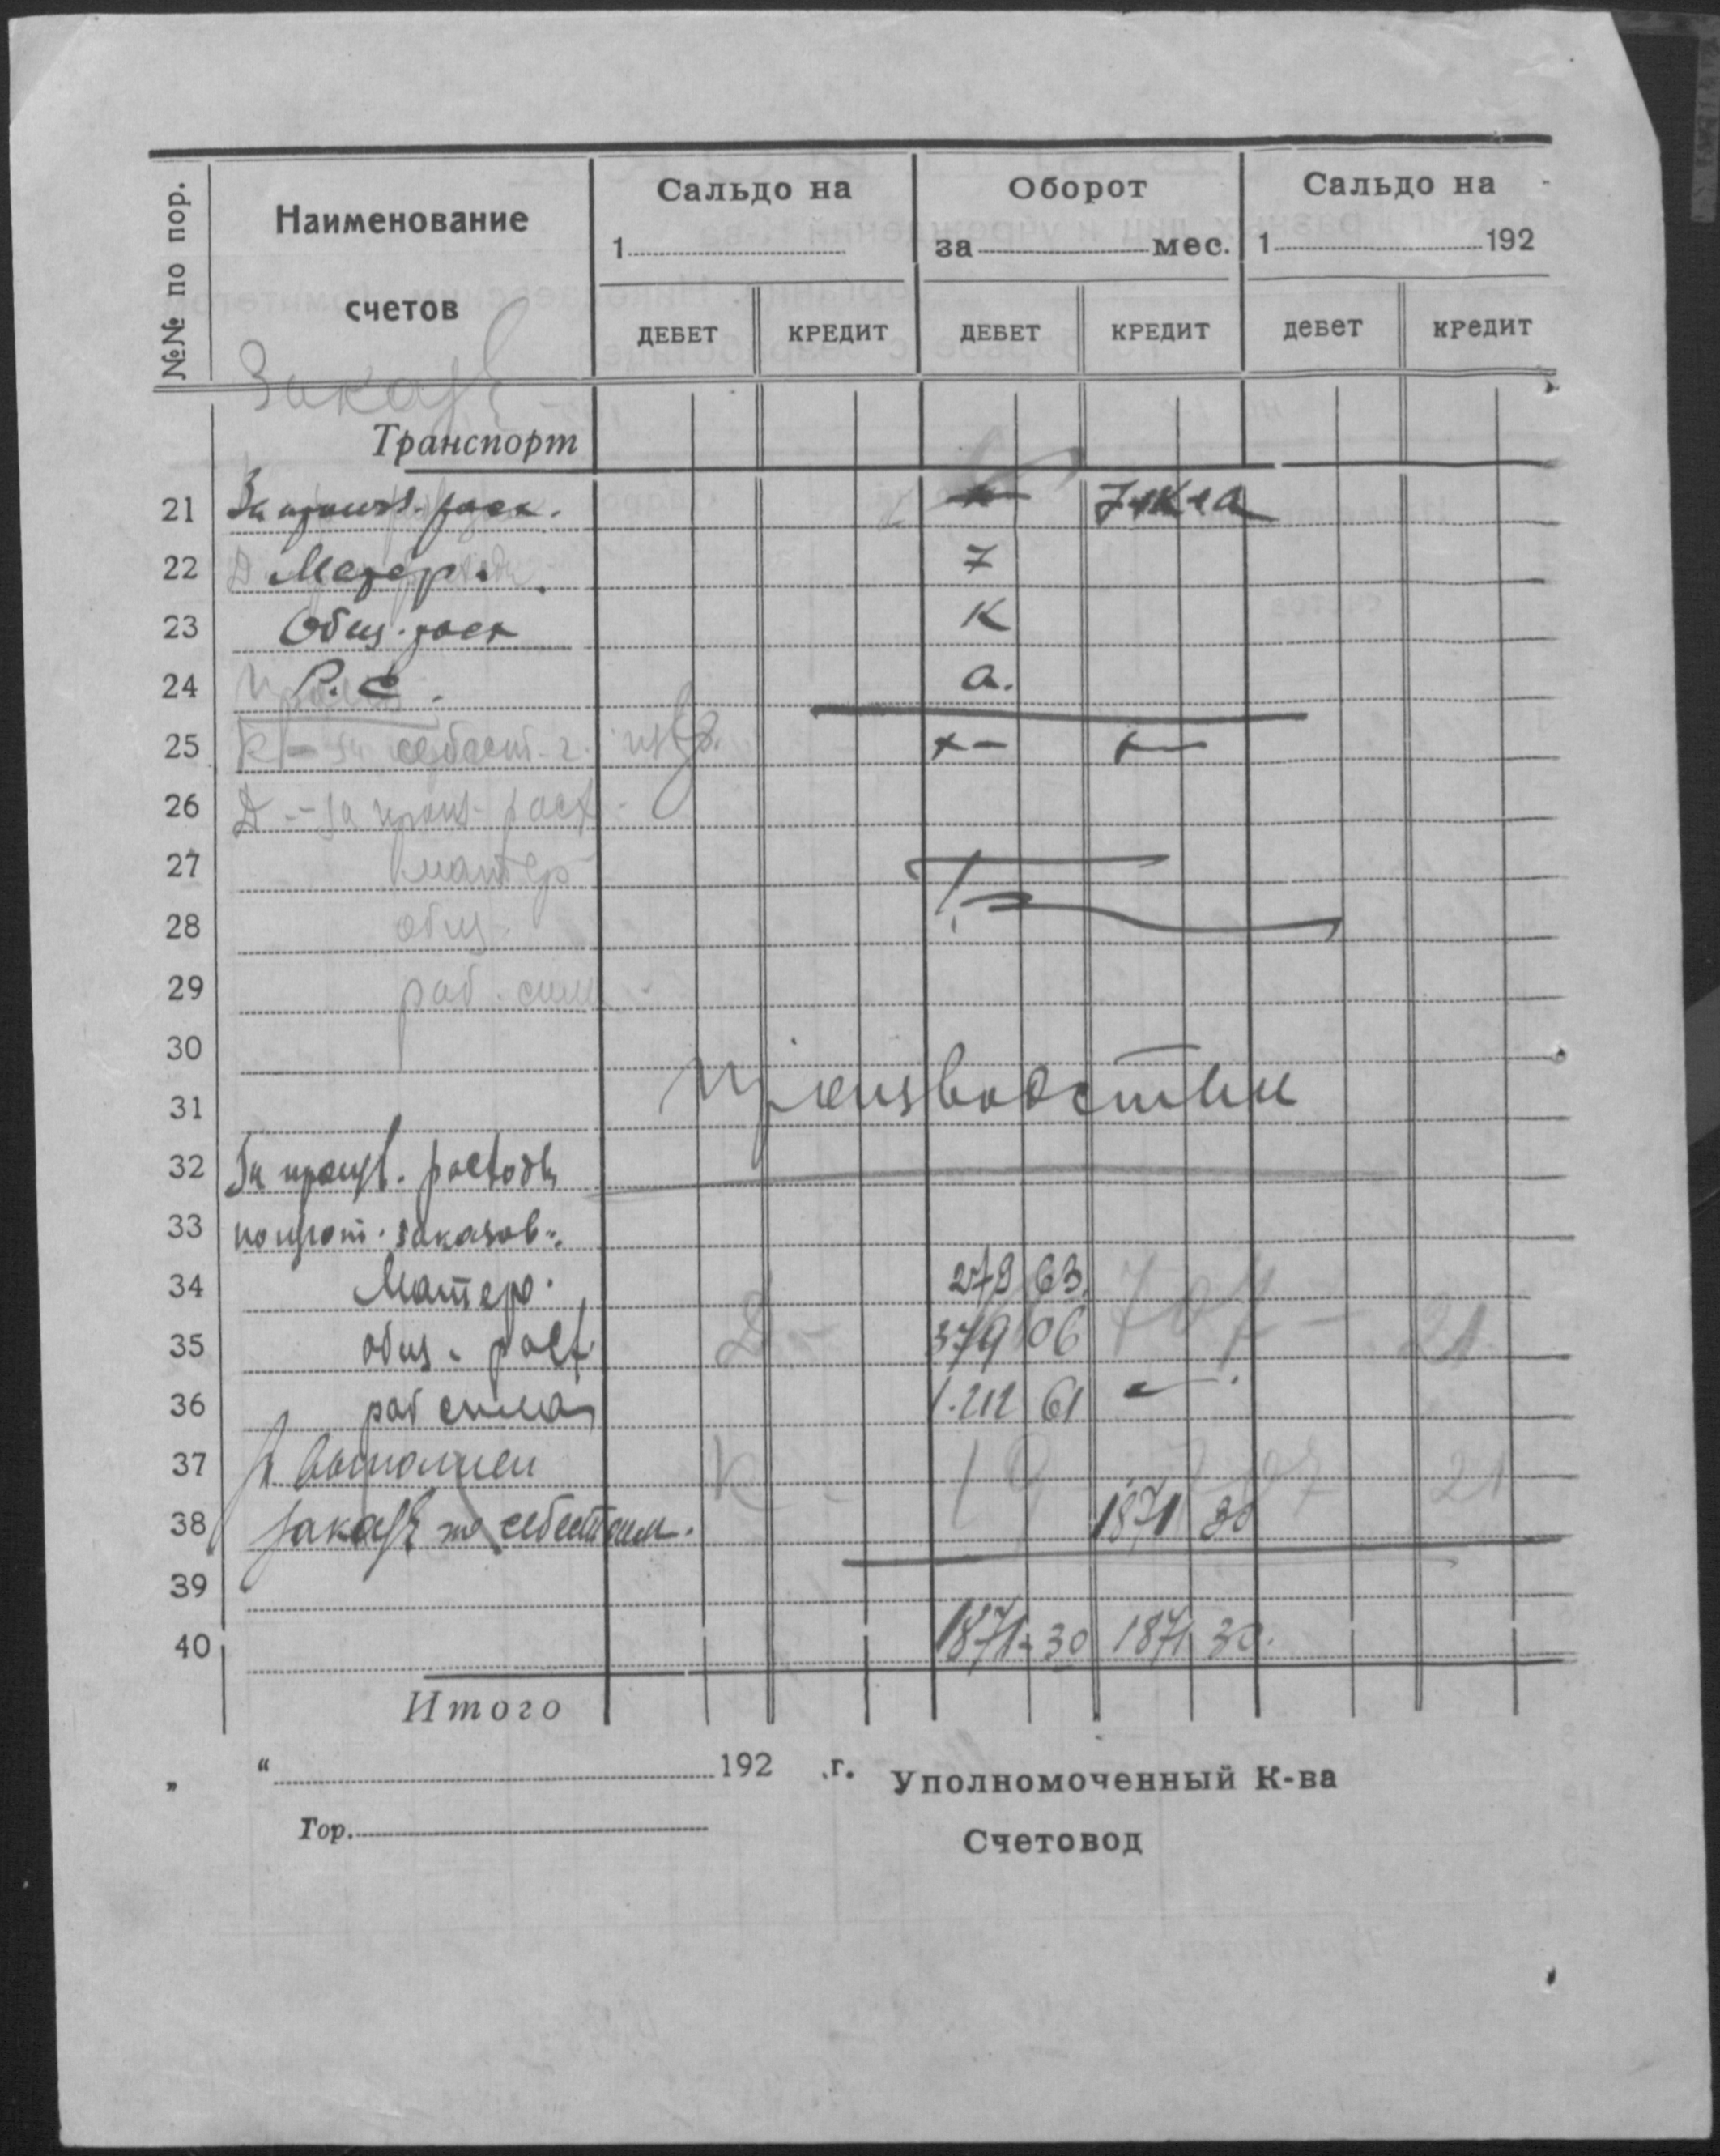 №№ по пор.
Наименование счетов
Сальдо на
1
Оборот
за мес.
Сальдо на
1 192
ДЕБЕТ КРЕДИТ ДЕБЕТ КРЕДИТ дебет кредит
Заказы
Транспорт
21 За произв. расх.
22 Матер. 7
23 Общ. расх К
24 Р. С. а.
25 К — за себест. г.
26 Д — за произв. расх.
27 матер
28 общ.
29 раб. сила
30
31 производствен
32 За произв. расходы
33 по изгот. заказов
34 Матер. 279 63
35 общ. расх. Д — 379 06 707 — 21
36 раб сила 1.212 61
37 За выполнен К — 19 707 21
38 заказы по себестоим. 1871 30
39
40 1871 - 30 1871 30.
Итого
„ “ 192 г. Уполномоченный К-ва
Гор.
Счетовод